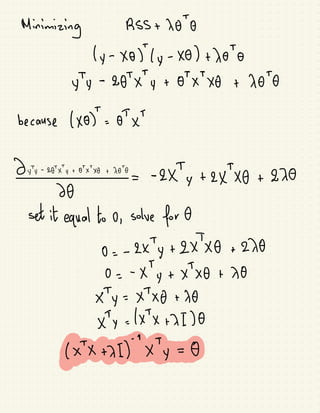 Minimizing RSS + λθᵀθ
(y - Xθ)ᵀ(y - Xθ) + λθᵀθ
yᵀy - 2θᵀXᵀy + θᵀXᵀXθ + λθᵀθ
because (Xθ)ᵀ = θᵀXᵀ
∂ yᵀy - 2θᵀXᵀy + θᵀXᵀXθ + λθᵀθ / ∂θ = -2Xᵀy + 2XᵀXθ + 2λθ
set it equal to 0, solve for θ
0 = -2Xᵀy + 2XᵀXθ + 2λθ
0 = -Xᵀy + XᵀXθ + λθ
Xᵀy = XᵀXθ + λθ
Xᵀy = (XᵀX + λI)θ
(XᵀX + λI)⁻¹ Xᵀy = θ